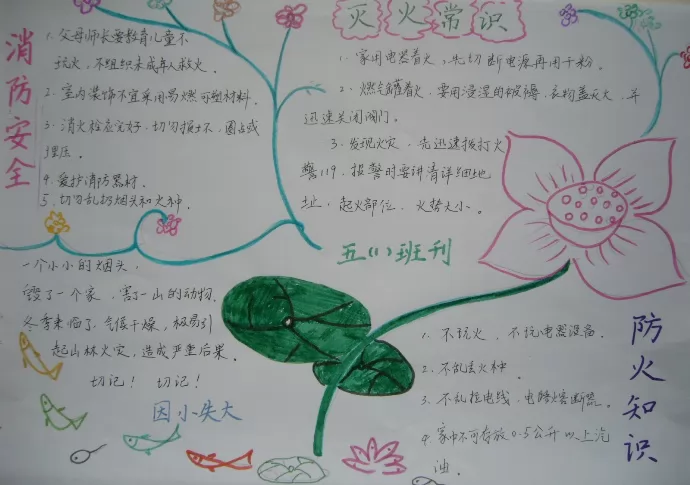 消防安全
1. 父母师长要教育儿童不
玩火，不组织未成年人救火。
2. 室内装饰不宜采用易燃可塑材料。
3. 消火栓应完好，切勿损坏、圈占或
埋压。
4. 爱护消防器材。
5. 切勿乱扔烟头和火种。
灭火常识
1. 家用电器着火，先切断电源再用干粉。
2. 燃气罐着火，要用浸湿的被褥、衣物盖灭火，并
迅速关闭阀门。
3. 发现火灾，先迅速拨打火
警119，报警时要讲清详细地
址、起火部位、火势大小。
五(1)班刊
一个小小的烟头，
毁了一个家，害了一山的动物。
冬季来临了，气候干燥，极易引
起山林火灾，造成严重后果。
切记！ 切记！
因小失大
防火知识
1. 不玩火，不玩电器设备。
2. 不乱丢火种。
3. 不乱拉电线，电路熔断器。
4. 家中不可存放0.5公升以上汽
油。